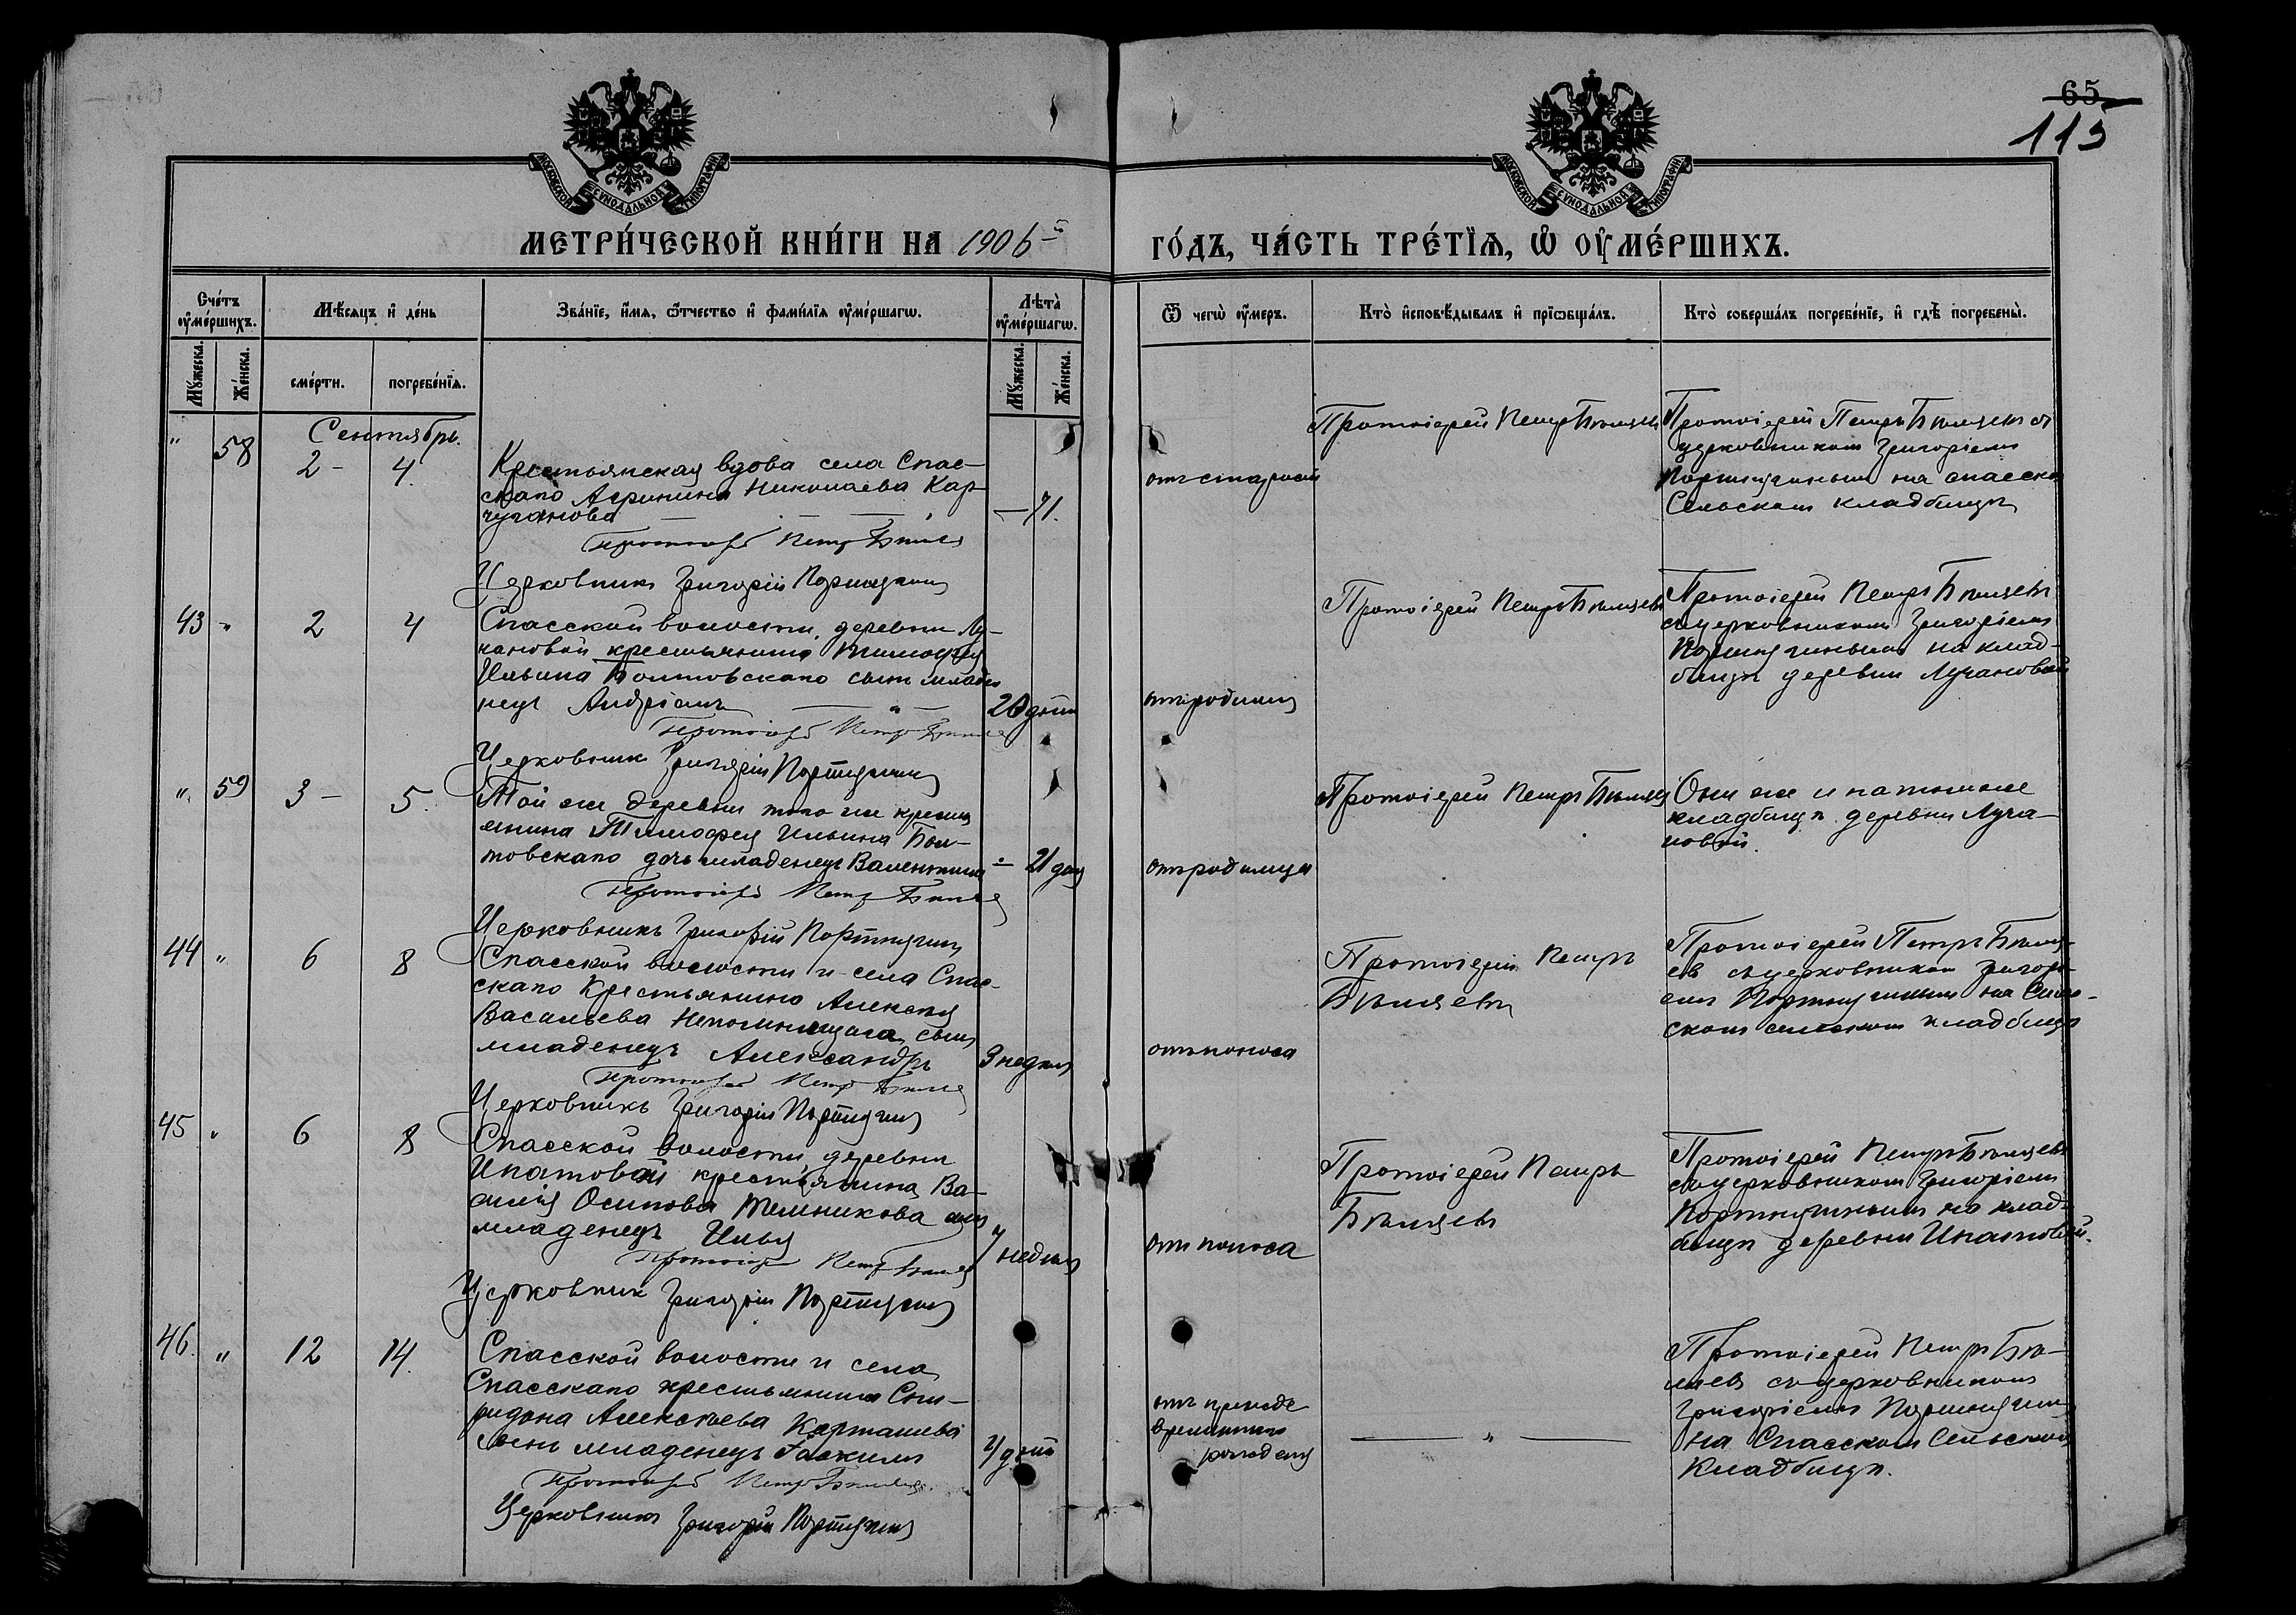 65
113
МОСКОВСКОЙ СѴНОДАЛЬНОЙ ТИПОГРАФІИ
МОСКОВСКОЙ СѴНОДАЛЬНОЙ ТИПОГРАФІИ
МЕТРИ́ЧЕСКОЙ КНИ́ГИ НА 1906-й
ГО́ДЪ, ЧА́СТЬ ТРЕ́ТЇѦ, Ѡ҆ ОУ҆МЕ́РШИХЪ.
Сче́тъ
оу҆ме́ршихъ.
Мꙋ́жеска.
Же́нска.
Мѣ́сѧцъ и҆ де́нь
сме́рти.
погребе́нїѧ.
Зва́нїе, и҆́мѧ, ѻ҆́тчество и҆ фами́лїѧ оу҆ме́ршагѡ.
Лѣта̀
оу҆ме́ршагѡ.
Мꙋ́жеска.
Же́нска.
Ѿ чегѡ̀ оу҆́меръ.
Кто̀ и҆сповѣ́дывалъ и҆ прїѡбща́лъ.
Кто̀ соверша́лъ погребе́нїе, и҆ гдѣ̀ погребены̀.
Сентябрь.
" 58 2 - 4.
Крестьянская вдова села Спас-
скаго Агрипина Николаева Кар-
чуганова
— 71.
Протоіерей Петръ Бѣляевъ
Церковникъ Григорій Портнягинъ
отъ старости
Протоіерей Петръ Бѣляевъ
Протоіерей Петръ Бѣляевъ съ
церковникомъ Григоріемъ
Портнягинымъ на спасско
Сельскомъ кладбищѣ
43 " 2 4
Спасской волости, деревни Лу-
чановой крестьянина Тимофея
Ильина Болтовскаго сынъ младе
нецъ Андріанъ
20 дней
Протоіерей Петръ Бѣляевъ
Церковникъ Григорій Портнягинъ
отъ родимца
Протоіерей Петръ Бѣляевъ
Протоіерей Петръ Бѣляевъ
съ церковникомъ Григоріемъ
Портнягинымъ на клад-
бищѣ деревни Лучановой
" 59 3 - 5.
Той же деревни того же кресть
янина Тимофея Ильина Бол-
товскаго дочь младенецъ Валентина
21 дня
Протоіерей Петръ Бѣляевъ
Церковникъ Григорій Портнягинъ
отъ родимца
Протоіерей Петръ Бѣляевъ
Они же и на томъ же
кладбищѣ деревни Луча-
новой.
44 " 6 8
Спасской волости и села Спас-
скаго Крестьянина Алексѣя
Васильева Непомнящаго сынъ
младенецъ Александръ
3 недѣли
Протоіерей Петръ Бѣляевъ
Церковникъ Григорій Портнягинъ
отъ поноса
Протоіерей Петръ
Бѣляевъ
Протоіерей Петръ Бѣля-
евъ съ церковникомъ Григорі-
емъ Портнягинымъ на Спас-
скомъ сельскомъ кладбищѣ
45 " 6 8
Спасской волости, деревни
Ипатовой крестьянина Ва-
силія Осипова Мельникова сынъ
младенецъ Илья
недѣли
Протоіерей Петръ Бѣляевъ
Церковникъ Григорій Портнягинъ
отъ поноса
Протоіерей Петръ
Бѣляевъ
Протоіерей Петръ Бѣляевъ
съ церковникомъ Григоріемъ
Портнягинымъ на клад-
бищѣ деревни Ипатовой.
46. " 12 14.
Спасской волости и села
Спасскаго крестьянина Спи-
ридона Алексѣева Карташева
сынъ младенецъ Іоакимъ
дней
Протоіерей Петръ Бѣляевъ
Церковникъ Григорій Портнягинъ
отъ прежде
временнаго
рожденія
— " —
Протоіерей Петръ Бѣ-
ляевъ съ церковникомъ
Григоріемъ Портнягин
на Спасскомъ Сельскомъ
Кладбищѣ.